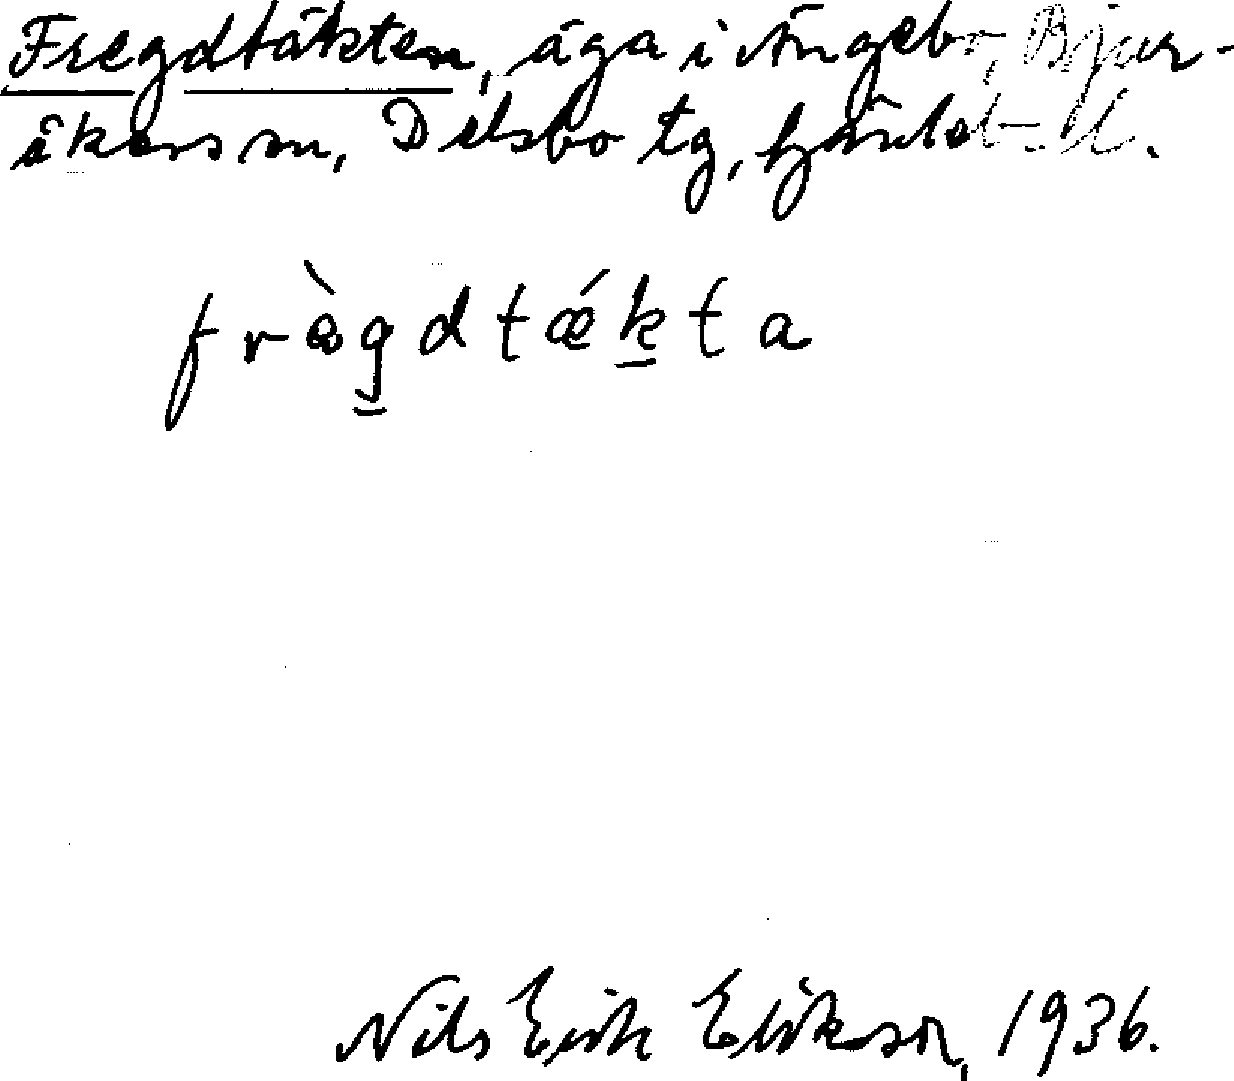 Fregdtäkten, äga i Ängebo, Bjur-
åkers sn, Delsbo tg, Gävleb. l.
fræ̀g̱dtǽḵta
Nils Erik Erikson, 1936.